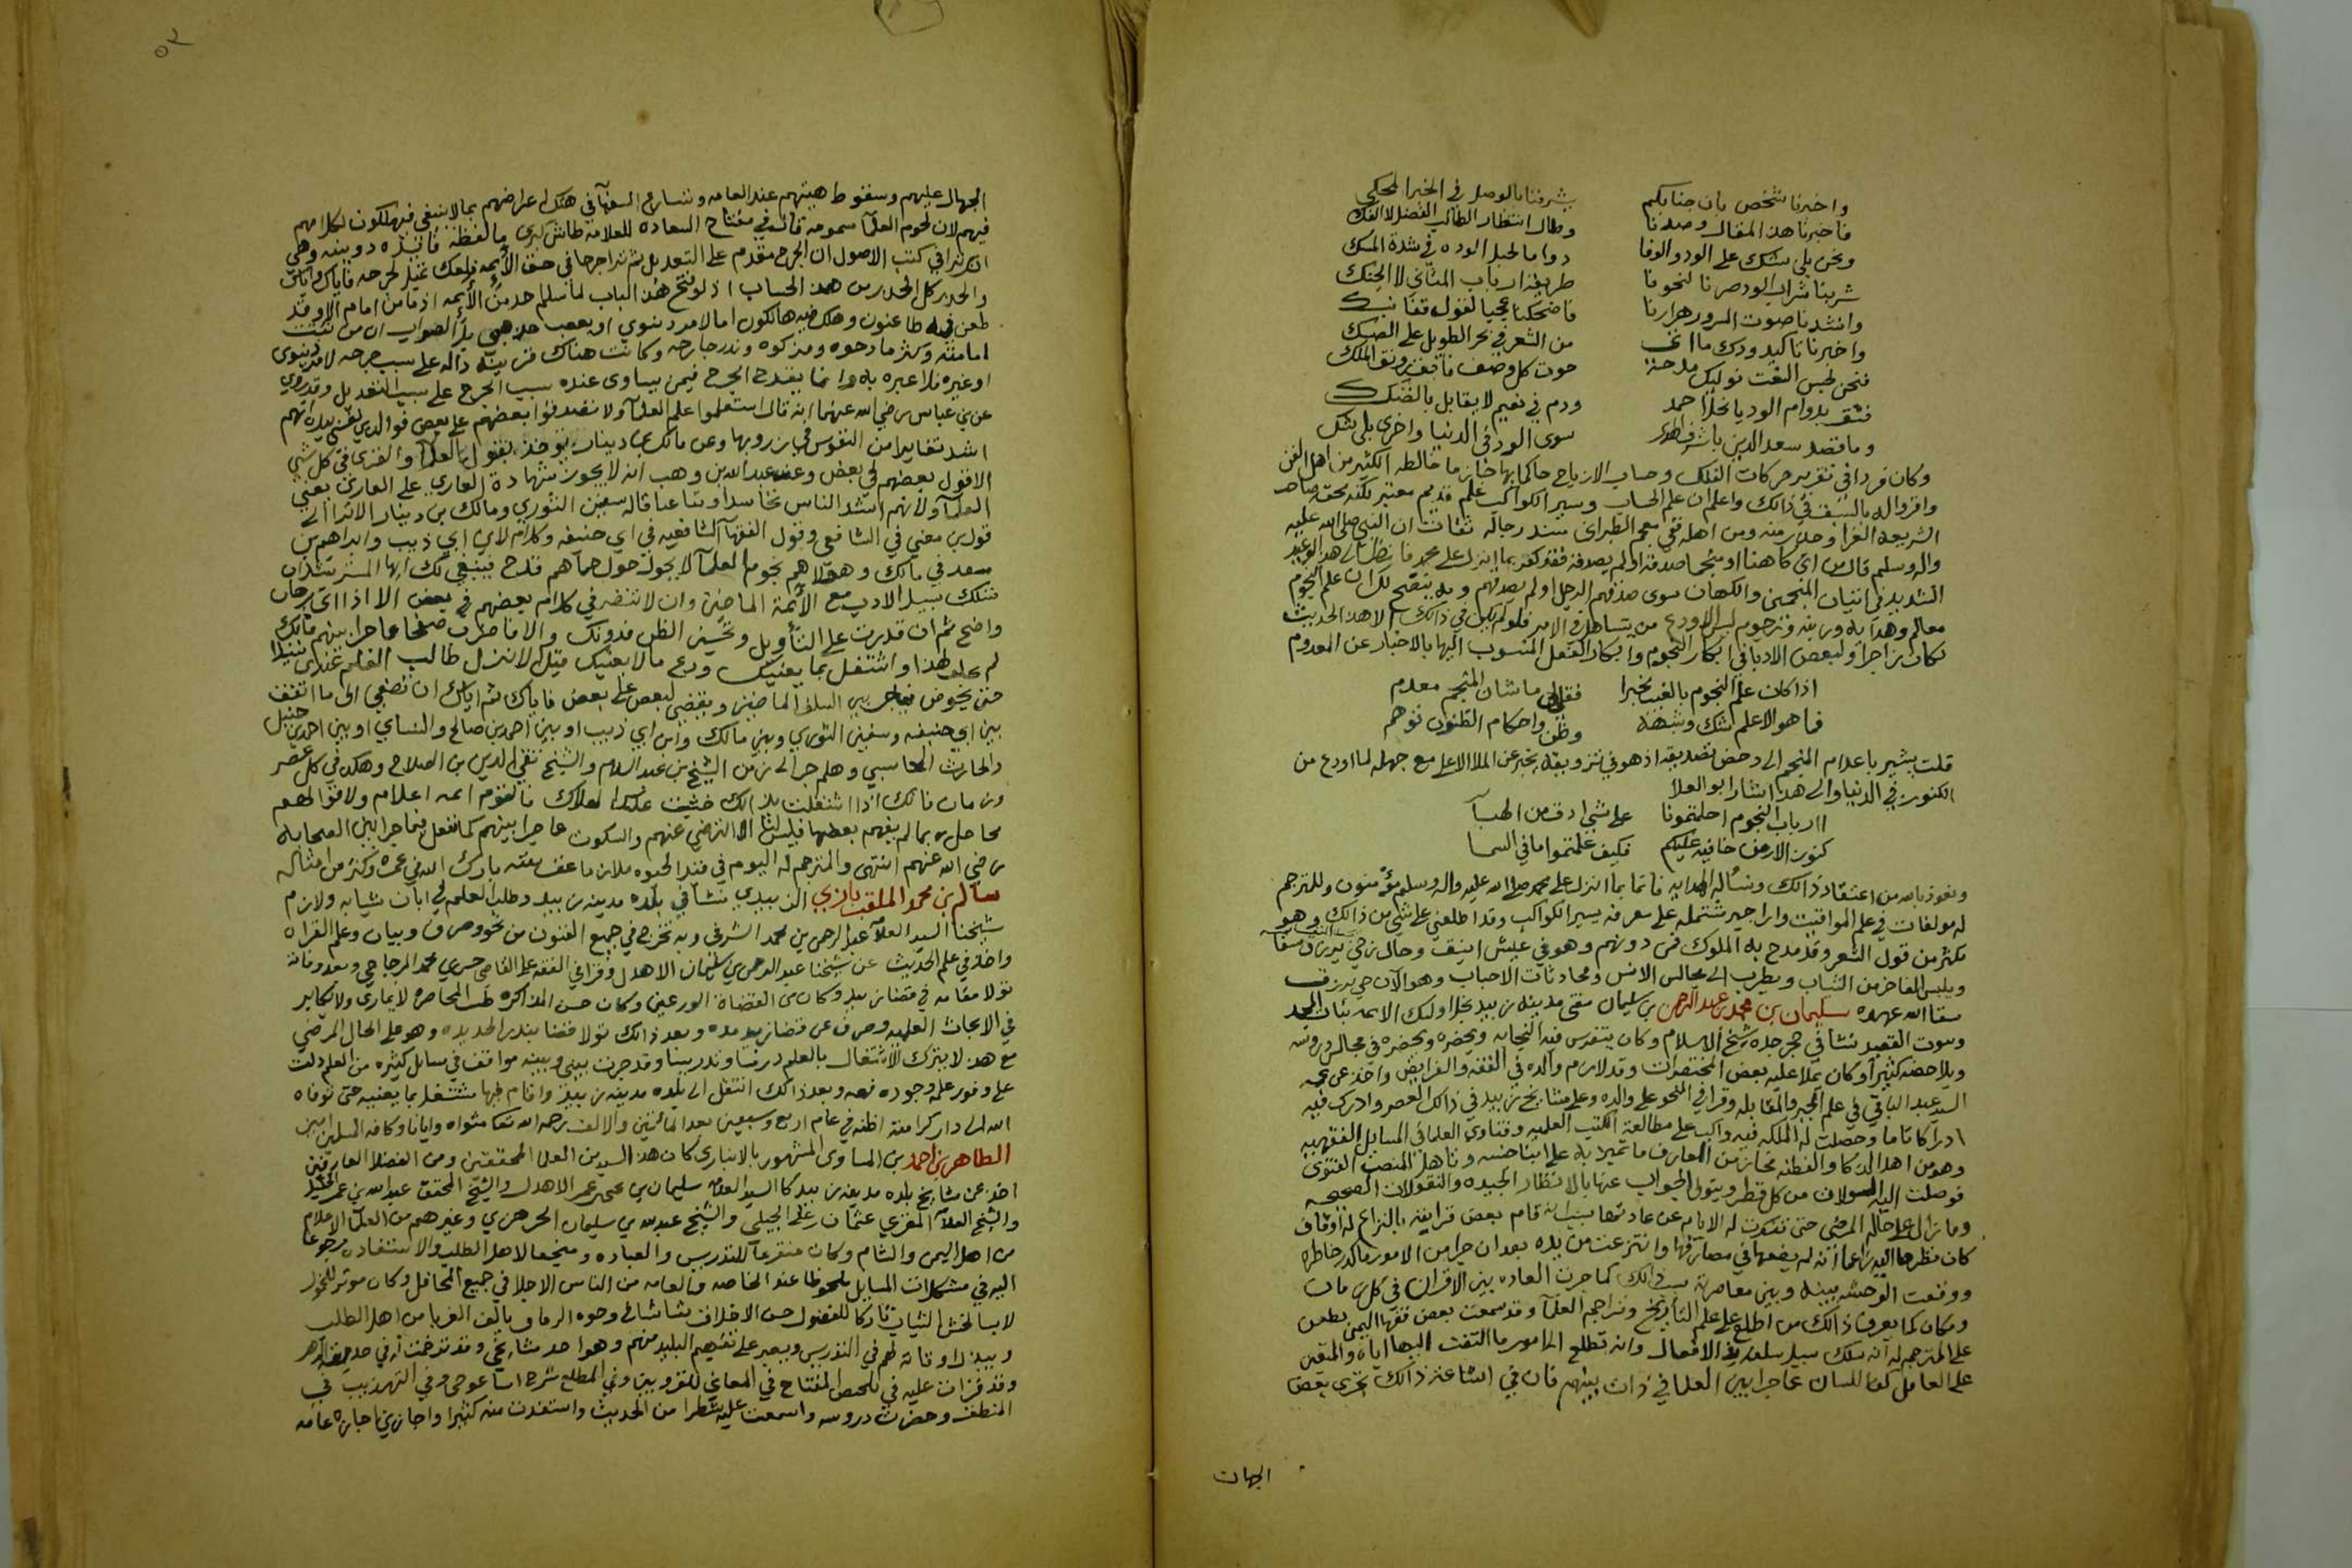 واخبرنا شخص بان جنابكم بشرفنا بالوصل في الخبر المحكي
فاخبرنا هذا المقال وصدنا وطال انتظار الطالب الفضل لا الفك
ونحن بلي شك على الود والوفا دواما لحبل الوده في شدة المسك
شربنا شراب الود صرنا لنحونا طريقة ارباب المثاني لا الجنك
وانشدنا صوت السرور هزارنا فاضحكنا عجبا لقول قفا نبك
واخبرنا تاكيد ودك ما اتى من الشعر في بحر الطويل على الصك
فنحن لحبس النعت نوليك مدحة حوت كل وصف فايق رونق الملك
فثق بدوام الود يا نجل احمد ودم في نعيم لا يقابل بالضنك
وما قصد سعد الدين يا شرف الهدى سوى الود في الدنيا واخرى بلي شك
وكان فردا في تقرير حركات الفلك وحساب الازياج حاكما بها خاز ما خالطه الكثير من اهل الفن
واقروا له بالسبق في ذالك واعلم ان علم الحساب وسير الكواكب علم قديم معتبر لكنه محقه صاحب
الشريعه الغرا وحذر منه ومن اهله ففي معجم الطبراني بسند رجاله ثقات ان النبي صلى الله عليه
واله وسلم قال من اتى كاهنا او منجما صدقه او لم يصدقه فقد كفر بما انزل على محمد فانظر الى هذا الوعيد
الشديد في اتيان المنجمين والكهان سوى صدقهم الرجل او لم يصدقهم وبه يتضح لك ان علم النجوم
معالم وهدايه وزينه ورجوم ليس الا ودع من يتساهل في الامر فلو لم يكن في ذالك الا هذا الحديث
لكان زاجرا ولبعض الادبا في انكار النجوم وانكار الفعل المنسوب اليها بالاخبار عن المعدوم
اذا كان علم النجوم بالغيب مخبرا فقل لي ما شان المنجم معدم
فما هو الا علم شك وشبهة وظن واحكام الظنون توهم
قلت يشير باعدام المنجم الى دحض تصديقه اذ هو في تزويقه يخبر عن الملا الاعلى مع جهله لما اودع من
الكنوز في الدنيا والى هذا اشار ابو العلا
اارباب النجوم احلتمونا على شي ادق من الهبآ
كنوز الارض خافيه عليكم فكيف علمتموا ما في السما
ونعوذ بالله من اعتقاد ذالك ونساله الهدايه فانما بما انزل على محمد صلى الله عليه واله وسلم مؤمنون وللمترجم
له مولفات في علم المواقيت واراجيز شتمله على معرفه يسير الكواكب وقد اطلعني على شي من ذالك وهو
مكثر من قول الشعر وقد مدح به الملوك فمن دونهم وهو في عيش انيق وحال رخي يرزق
ويلبس الفاخر من الثياب ويطرب الى مجالس الانس ومحادثات الاحباب وهو الآن حي يرزق
سقا الله عهده سليمان بن محمد بن عبد الرحمن بن سليمان مفتي مدينة زبيد نجل اوليك الايمه بنات المجد
وبيوت القصيد نشا في حجر جده شيخ الاسلام وكان يتفرس فيه النجابه ويحضره في مجالس دروسه
ويلاحضه كثيرا وكان يملا عليه بعض المختصرات وقد لازم والده في الفقه والفرايض واخذ عن عمه
السيد عبد الباقي في علم الجبر والمقابله وقرا في النحو على والده وعلى مشايخ زبيد في ذالك العصر وادرك فيه
ادراكا تاما وحصلت له الملكه فيه واكب على مطالعة الكتب العلميه وفتاوي العلما في المسايل الفقهيه
وهو من اهل الذكا والفطنه نحاز من المعارف ما تميز به على ابنا جنسه وتاهل المنصب الفتوى
فوصلت اليه السولات من كل قطر ويتولى الجواب عنها بالانظار الجيده والنقولات الصحيحه
وما زال على حاله المرضي حتى تنكرت له الايام عن عادتها بسبب انه قام بعض قرايبه بالنزاع له اوقاف
كان نظرها اليه زاعما انه لم يضعها في مصارفها وانتزعت من يده بعد ان جرا من الامور ما كدر خاطره
ووقعت الوحشه بينه وبين معاصريه بسبب ذالك كما جرت العاده بين الاقران في كل زمان
ومكان كما يعرف ذالك من اطلع على علم التأريخ وتراجم العلمآ وقد سمعت بعض فقها اليمن يطعن
على المترجم له انه سلك سبيل سلفه في الافعال وانه تطلع الى امور ما التفت اليها اباه والمتقين
على العاقل كف اللسان عما جرا بين العلما في ذات بينهم فان في اشاعة ذالك تجرى بعض
الجهال
الجهال عليهم وسقوط هيبتهم عند العامه وتسارع السفهآ في هتك اعراضهم بما لا ينبغي فيهلكون لكلامهم
فيهم لان لحوم العلمآ سمومه قال في مفتاح السعاده للعلامه طاش كبرى ما لفظه فائده دوينه وهي
انك ترا في كتب الاصول ان الجرح مقدم على التعديل ثم ترا جرحا في حق الأيمه فلعك تميل لجرحه فاياك واياك
والحذر كل الحذر من هذا الحساب اذ لو فتح هذا الباب لما سلم احد من الأيمه اذ ما من امام الا وقد
طعن فيه طاعنون وهلك فيه هالكون اما لامر دنيوي او تعصب مذهبي بل الصواب ان من ثبتت
امامته وكثر مادحوه ومزكوه وندر جارحه وكانت هناك قرينه داله على سبب جرحه لامر دنيوي
او غيره فلا عبره به وانما يقدح الجرح فيمن يساوى عنده سبب الجرح على سبب التعديل وقد روي
عن بن عباس رضي الله عنهما انه قال استعلموا علم العلمآ ولا تصدقوا بعضهم على بعض فوالذي نفسي بيده انهم
اشد تغايرا من التيوس في زروبها وعن مالك بن دينار يؤخذ بقول العلمآ والقرى في كل شي
الا قول بعضهم في بعض وعن عبد الله بن وهب انه لا يجوز شهادة القاري على القاري يعني
العلمآ ولانهم اشد الناس تحاسدا وتباغضا قاله سفين الثوري ومالك بن دينار الا ترا الى
قول بن معين في الشافعي وقول الفقهآ الشافعيه في ابي حنيفه وكلام لابي ابي ذيب وابراهيم بن
سعد في مالك وهؤلاهم نجوم العلمآ لا يجول حول حماهم قدح فينبغي لك ايها المسترشد ان
تسلك سبيل الادب مع الأيمة الماضين وان لا تنضر في كلام بعضهم في بعض الا اذا اتى ببرهان
واضح ثم ان قدرت على التأويل وتحسين الظن فدونك والا فاضرب صفحا عما جرا بينهم فانك
لم تخلق لهذا واشتغل بما يعنيك ودع مالا يعنيك قيل لا نزل طالب العلم عندي نبيلا
حتى يخوض فيما جرى بين السلف الماضين ويقضي لبعض على بعض فاياك ثم اياك ان تصغي الى ما اتفق
بين ابي حنيفه وسفين الثوري وبين مالك وابن ابي ذيب او بين احمد بن صالح والنساي او بين احمد بن حنبل
والحارث المحاسبي وهلم جرا الى زمن الشيخ بن عبد السلام والشيخ تقي الدين بن الصلاح وهكذا في كل عصر
وزمان فانك اذا اشتغلت بذالك خشيت عليك الهلاك فالقوم ايمه اعلام ولاقوالهم
محامل ربما لم يفهم بعضها فليس لنا الا الترضي عنهم والسكوت عما جرا بينهم كما نفعل فيما جرا بين الصحابه
رضي الله عنهم انتهى والمترجم له اليوم في قيد الحيوه ملازما عفت نفسه بارك الله في عمره وكثر من امثاله
سالم بن محمد الملقب بازي الزبيدي نشآ في بلده مدينه زبيد وطلب العلم في ابان شبابه ولازم
شيخنا السيد العلآمه عبد الرحمن بن محمد الشرفي وبه تخرج في جميع الفنون من نحو وصرف وبيان وعلم القراه
واخذ في علم الحديث عن شيخنا عبد الرحمن بن سليمان الاهدل وقرا في الفقه على القاضي حسين محمد المزجاجي وبعد وفاته
تولا مقامه في قضا زبيد وكان من القضاة الورعين وكان حسن المذاكره طيب المحاضره لا يماري ولا يكابر
في الابحاث العلميه وصرف عن قضا زبيد مده وبعد ذالك تولا قضا بندر الحديده وهو على الحال المرضي
مع هذا لا يترك الاشتغال بالعلم درسا وتدريسا وقد جرت بيني وبينه مواقف في مسايل كثيره من العلم دلت
على وفور علمه وجوده فهمه وبعد ذالك انتقل الى بلده مدينه زبيد واقام فيها مشتغلا بما يعنيه حتى توفاه
الله الى دار كرامته اظنه في عام اربع وسبعين بعد المائتين والالف رحمه الله تعالى مثواه وايانا وكافه المسلمين امين
الطاهر بن احمد بن المساوى المشهور بالانباري كان هذا السيد من العلما المحققين ومن الفضلا العارفين
اخذ عن مشايخ بلده مدينه زبيد كالسيد العلامه سليمان بن يحيى عمر الاهدل والشيخ المحقق عبد الله بن عمر الخليل
والشيخ العلآمه المقري عثمان بن علي الجبيلي والشيخ عبد الله بن سليمان الجرهزي وغيرهم من العلمآ الاعلام
من اهل اليمن والشام وكان متفرغا للتدريس والعباده ومنجعا لاهل الطلب والاستفاده مرجوعا
اليه في مشكلات المسايل ملحوظا عند الخاصه والعامه من الناس الاجلا في جميع المحافل وكان موثر للخمول
لابسا لخشن الثياب تاركا للفضول حسن الاخلاق بشاشا في وجوه الرفاق يالف الغربا من اهل الطلب
ويبذل اوقاته لهم في التدريس ويصبر على تفهيم البليد منهم وهو احد مشايخي وقد ترجمت له في حدايق الزهر
وقد قرات عليه في تلخيص المفتاح في المعاني للقزويني وفي المطلع شرح ايساغوجي وفي التهذيب في
المنطق وحضرت دروسه واسمعت عليه شطرا من الحديث واستفدت منه كثيرا واجازني اجازه عامه